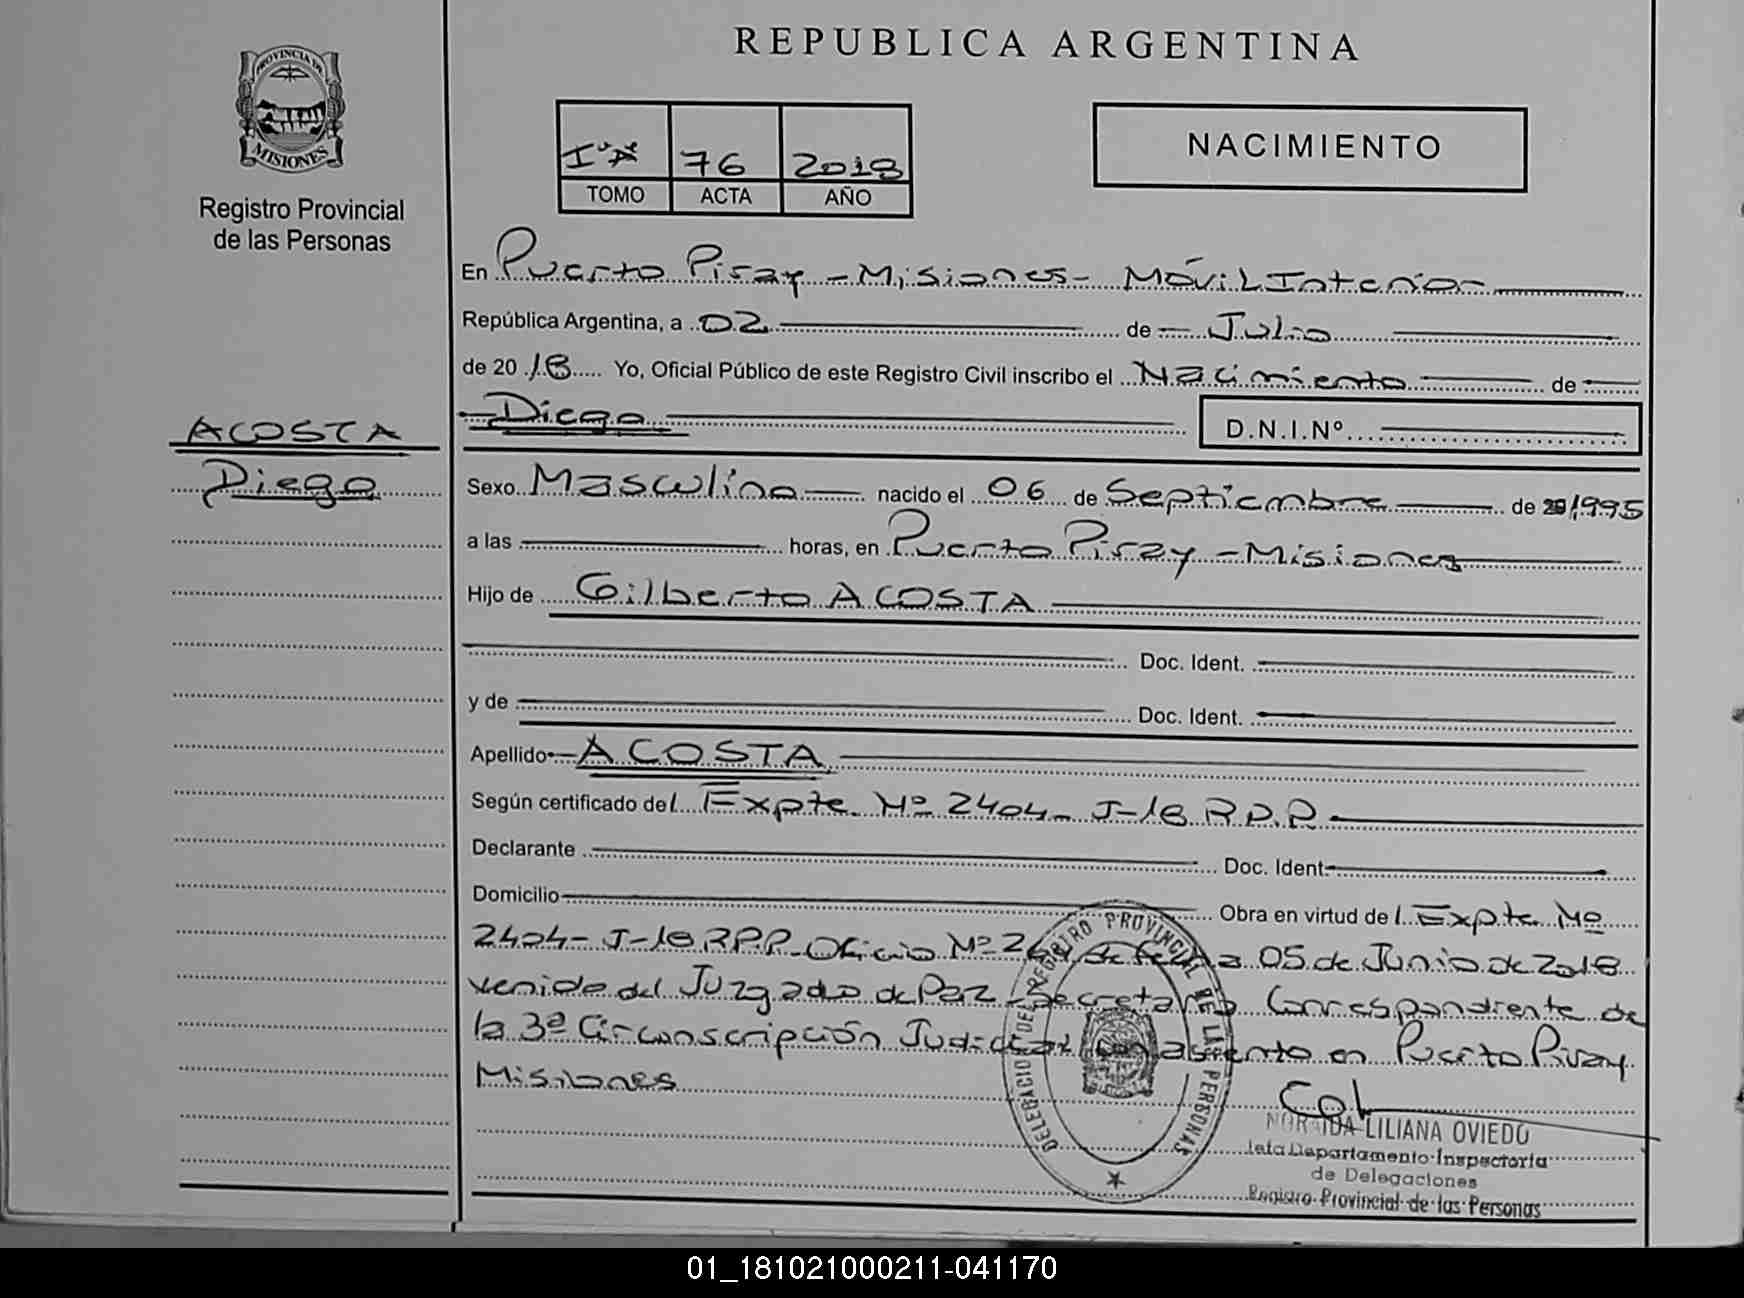 REPUBLICA ARGENTINA
PROVINCIA DE
MISIONES
Registro Provincial
de las Personas
76 2018
TOMO ACTA AÑO
NACIMIENTO
En Puerto Piray - Misiones - Móvil Interior
República Argentina, a 02 de Julio
de 20 18 Yo, Oficial Público de este Registro Civil inscribo el Nacimiento de
ACOSTA
Diego
Diego D.N.I.Nº
Sexo Masculino nacido el 06 de Septiembre de 1995
a las horas, en Puerto Piray - Misiones
Hijo de Gilberto ACOSTA
Doc. Ident.
y de Doc. Ident.
Apellido ACOSTA
Según certificado del Expte. Nº 2404 - J-18 R.P.P.
Declarante Doc. Ident.
Domicilio Obra en virtud del Expte. Nº
2404 - J-18 R.P.P. Oficio Nº de fecha 05 de Junio de 2018
venido del Juzgado de Paz - Secretaría Correspondiente de
la 3ª Circunscripción Judicial con asiento en Puerto Piray
Misiones
REGISTRO PROVINCIAL DE LAS PERSONAS
NORAIDA LILIANA OVIEDO
Jefa Departamento Inspectoría
de Delegaciones
Registro Provincial de las Personas
01_181021000211-041170